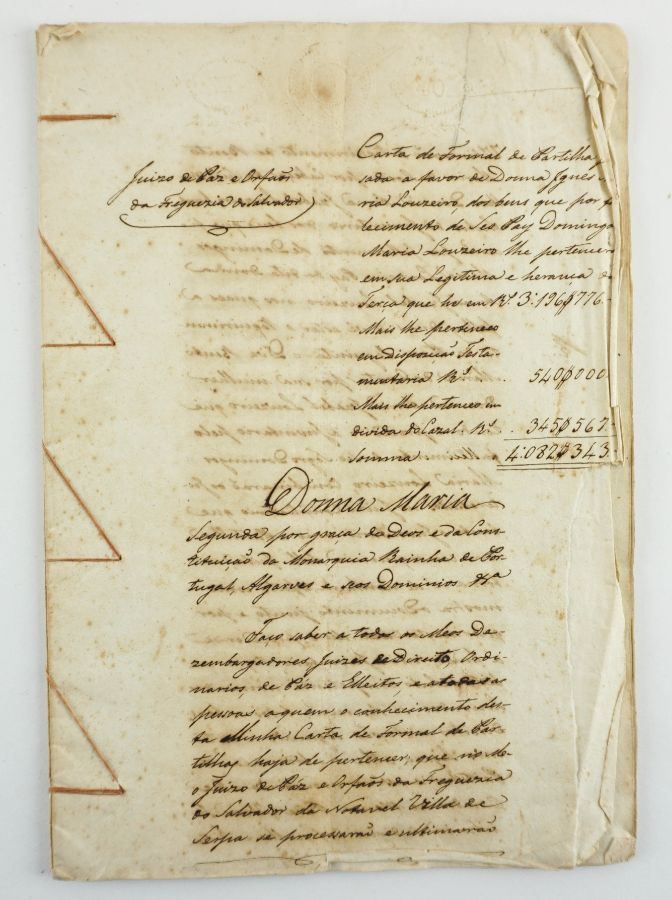 Juizo de Páz e Orfaõs
da Freguezia do Salvador
Carta de Formal de Partilhas
sada a favor de Donna Ignes
ria Louzeiro, dos bens que por
lecimento de Seo Pay Domingo
Maria Louzeiro lhe pertencer
em sua Legitima e herança
Terça que he em R.s 3:196$776
Mais lhe pertenceo
em Dispozição Testa-
mentaria R.s 540$000
Mais lhe pertenceo em
divida do Cazal R.s 345$567
Somma 4:082$343
Donna Maria
Segunda por graça de Deos e da Cons-
tituição da Monarquia Rainha de Por-
tugal, Algarves e seos Dominios &.a
Faço saber a todos os Meos De-
zembargadores, Juizes de Direito, Ordi-
narios, de Páz e Elleitos, e a todas as
pessoas aquem o conhecimento des-
ta Minha Carta de Formal de Par-
tilhas haja de pertencer, que no Me-
o Juizo de Páz e Orfaõs da Freguezia
do Salvador da Notavel Villa de
Serpa se processarão e ultimarão